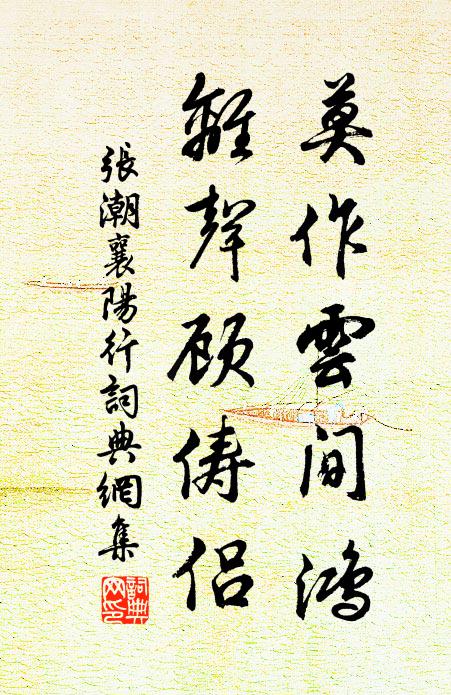 莫作雲間鴻
離聲顧儔侶
張潮襄陽行詞典網集
詞典網印